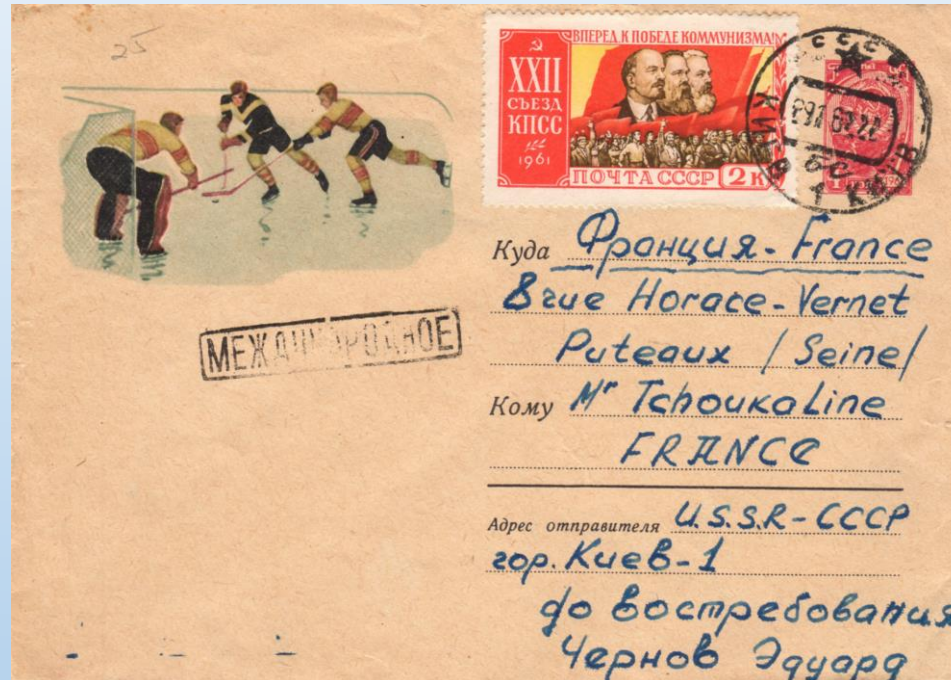 25
ВПЕРЕД К ПОБЕДЕ КОММУНИЗМА!
XXII
СЪЕЗД
КПСС
1961
ПОЧТА СССР 2К
СССР
КИЕВ
МЕЖДУНАРОДНОЕ
Куда Франция - France
8 rue Horace-Vernet
Puteaux / Seine /
Кому Mr Tchoukaline
FRANCE
Адрес отправителя U.S.S.R - СССР
гор. Киев-1
до востребования
Чернов Эдуард